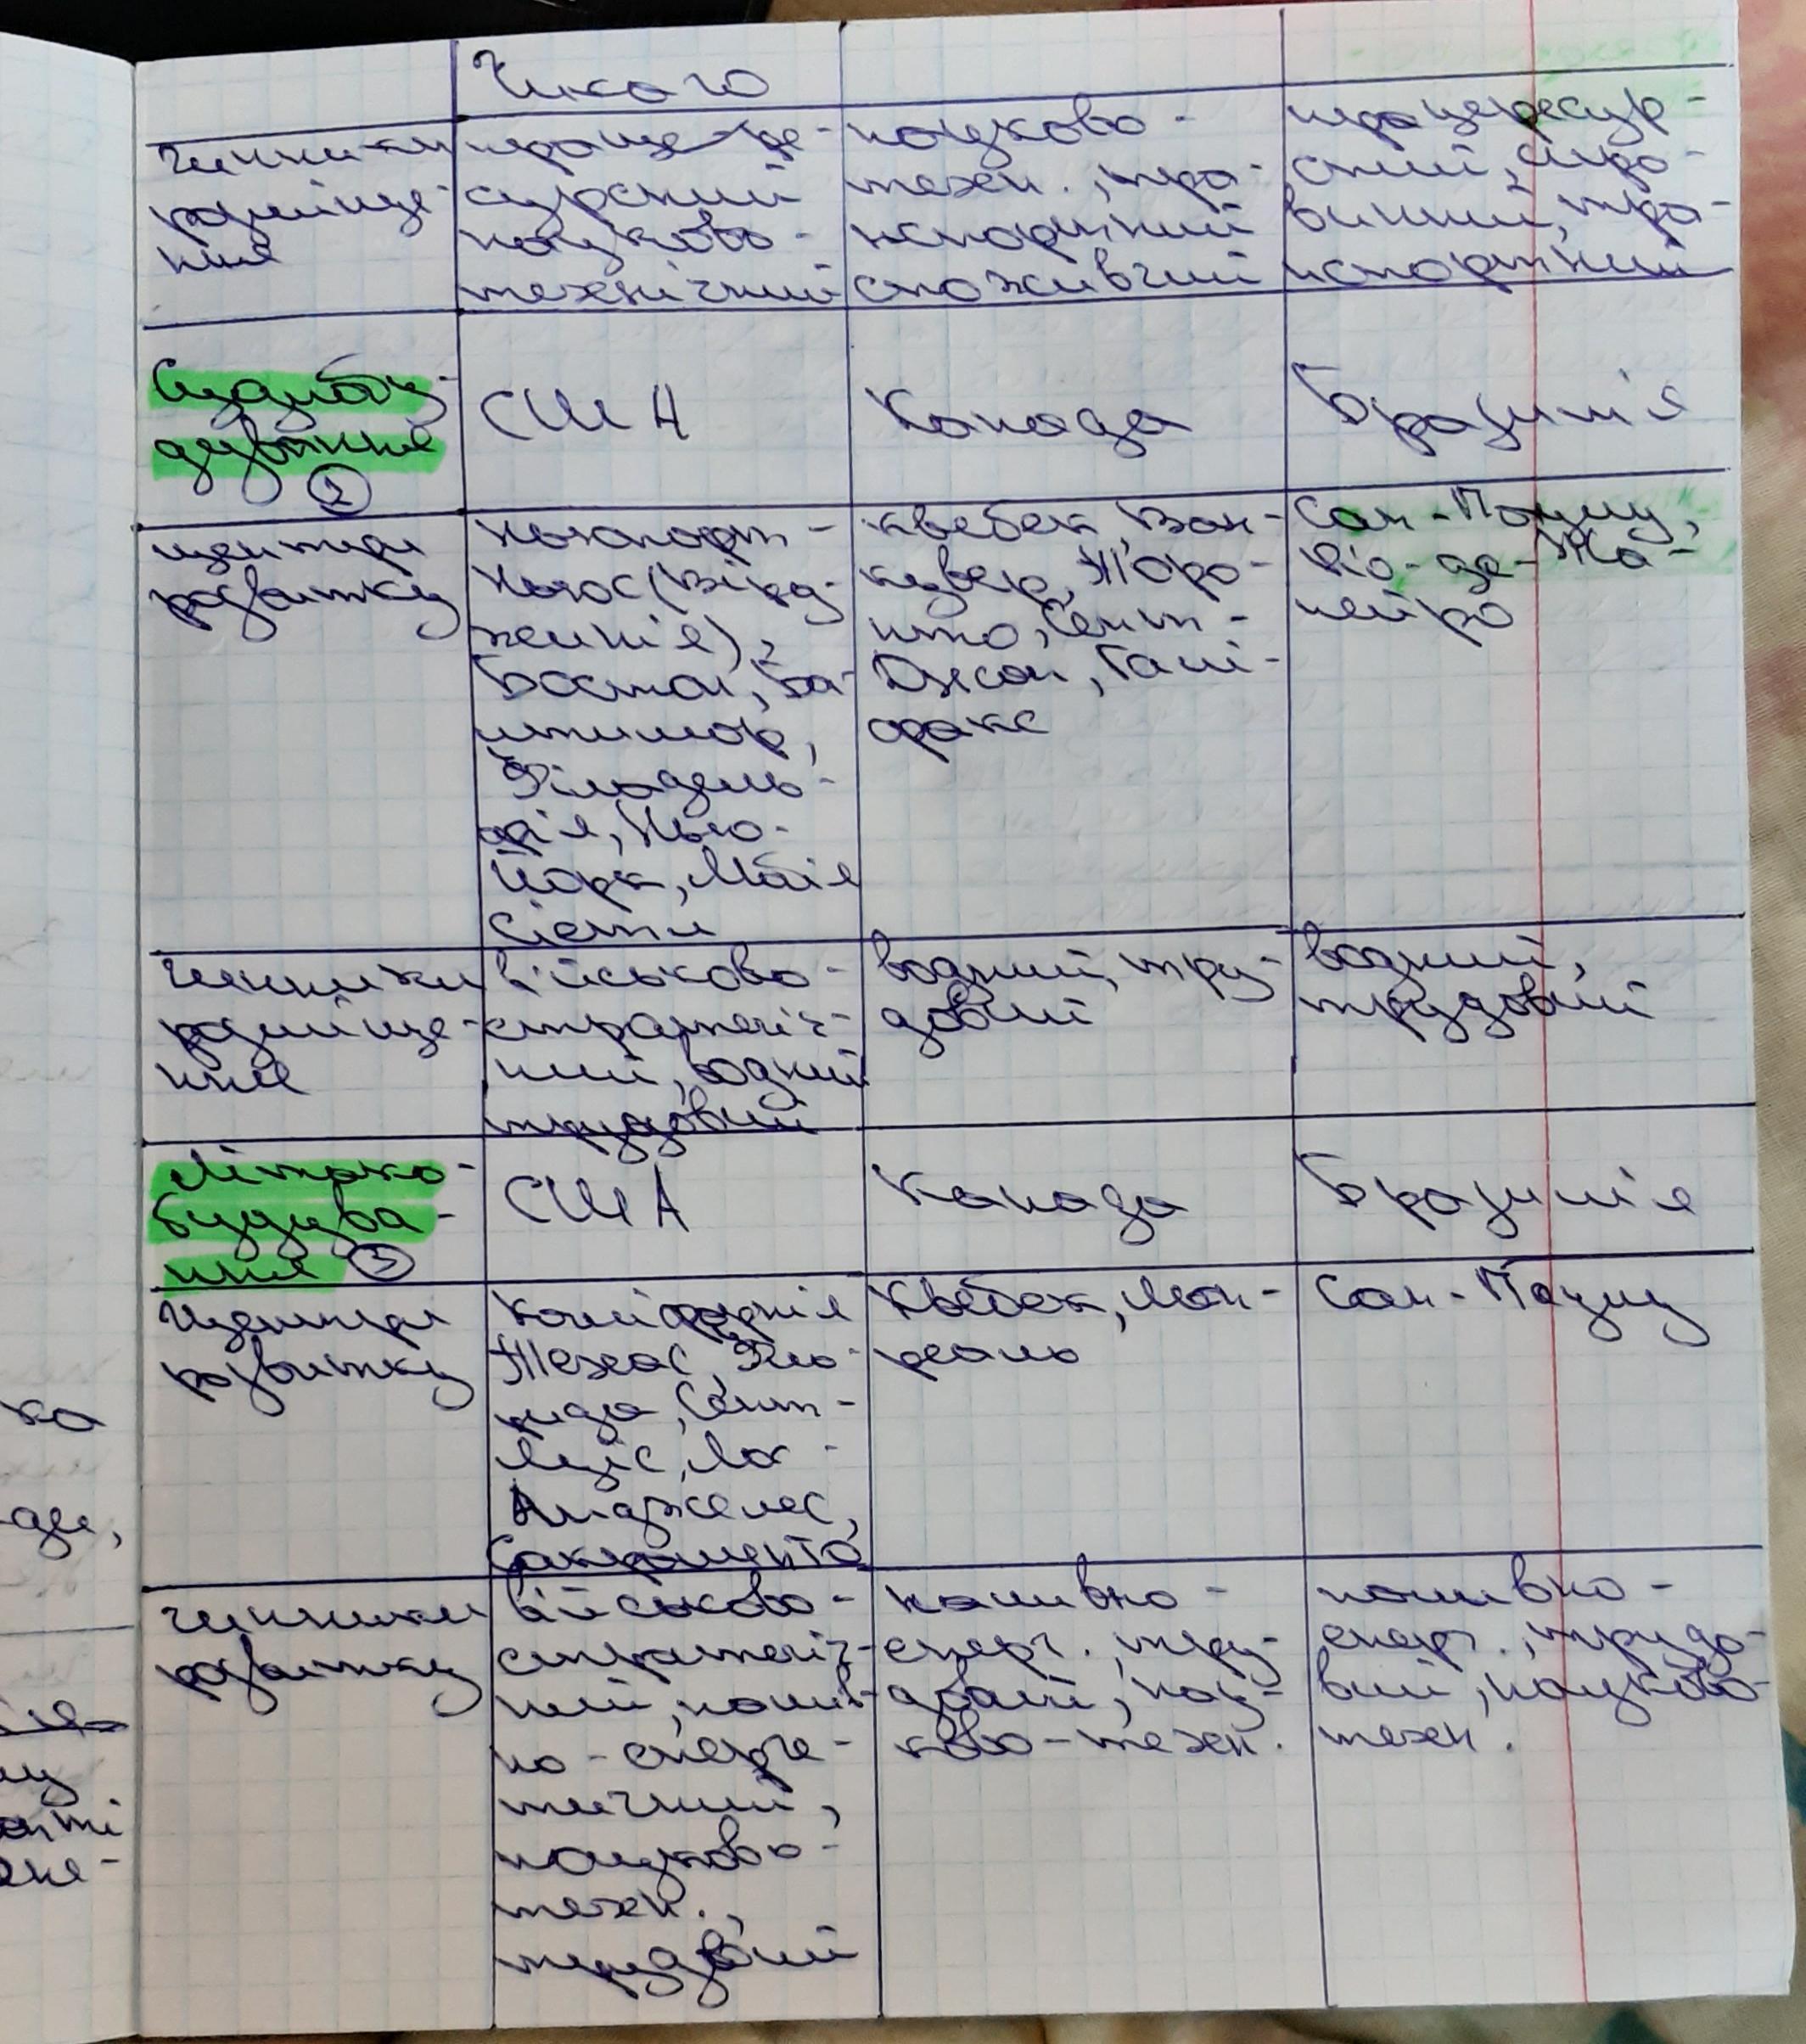 Чикаго
чинники
розміще-
ння
працере-
сурсний
науково-
технічний
науково-
техн., тра-
нспортний
споживчий
працересур-
сний, сиро-
винний, тра-
нспортний
Суднобу-
дування
2
США
Канада
Бразилія
центри
розвитку
Ньюпорт-
Ньюс (Вірд-
жинія),
Бостон, Ба-
лтимор,
Філадель-
фія, Нью-
Йорк, Мобіл
Сіетл
Квебек, Ван-
кувер, Торо-
нто, Сент-
Джон, Галі-
факс
Сан-Паулу,
Ріо-де-Жа-
нейро
чинники
розміще-
ння
військово-
стратегіч-
ний, водний
трудовий
водний, тру-
довий
водний,
трудовий
Літако-
будува-
ння 3
США
Канада
Бразилія
Центри
розвитку
Каліфорнія
Техас, Фло-
рида, Сент-
Луїс, Лос-
Анджелес,
Сакраменто
Квебек, Мон-
реаль
Сан-Паулу
чинники
розвитку
військово-
стратегіч-
ний, палив-
но-енерге-
тичний,
науково-
техн.,
трудовий
паливно-
енерг., тру-
довий, нау-
ково-техн.
паливно-
енерг., трудо-
вий, науково-
техн.
ка